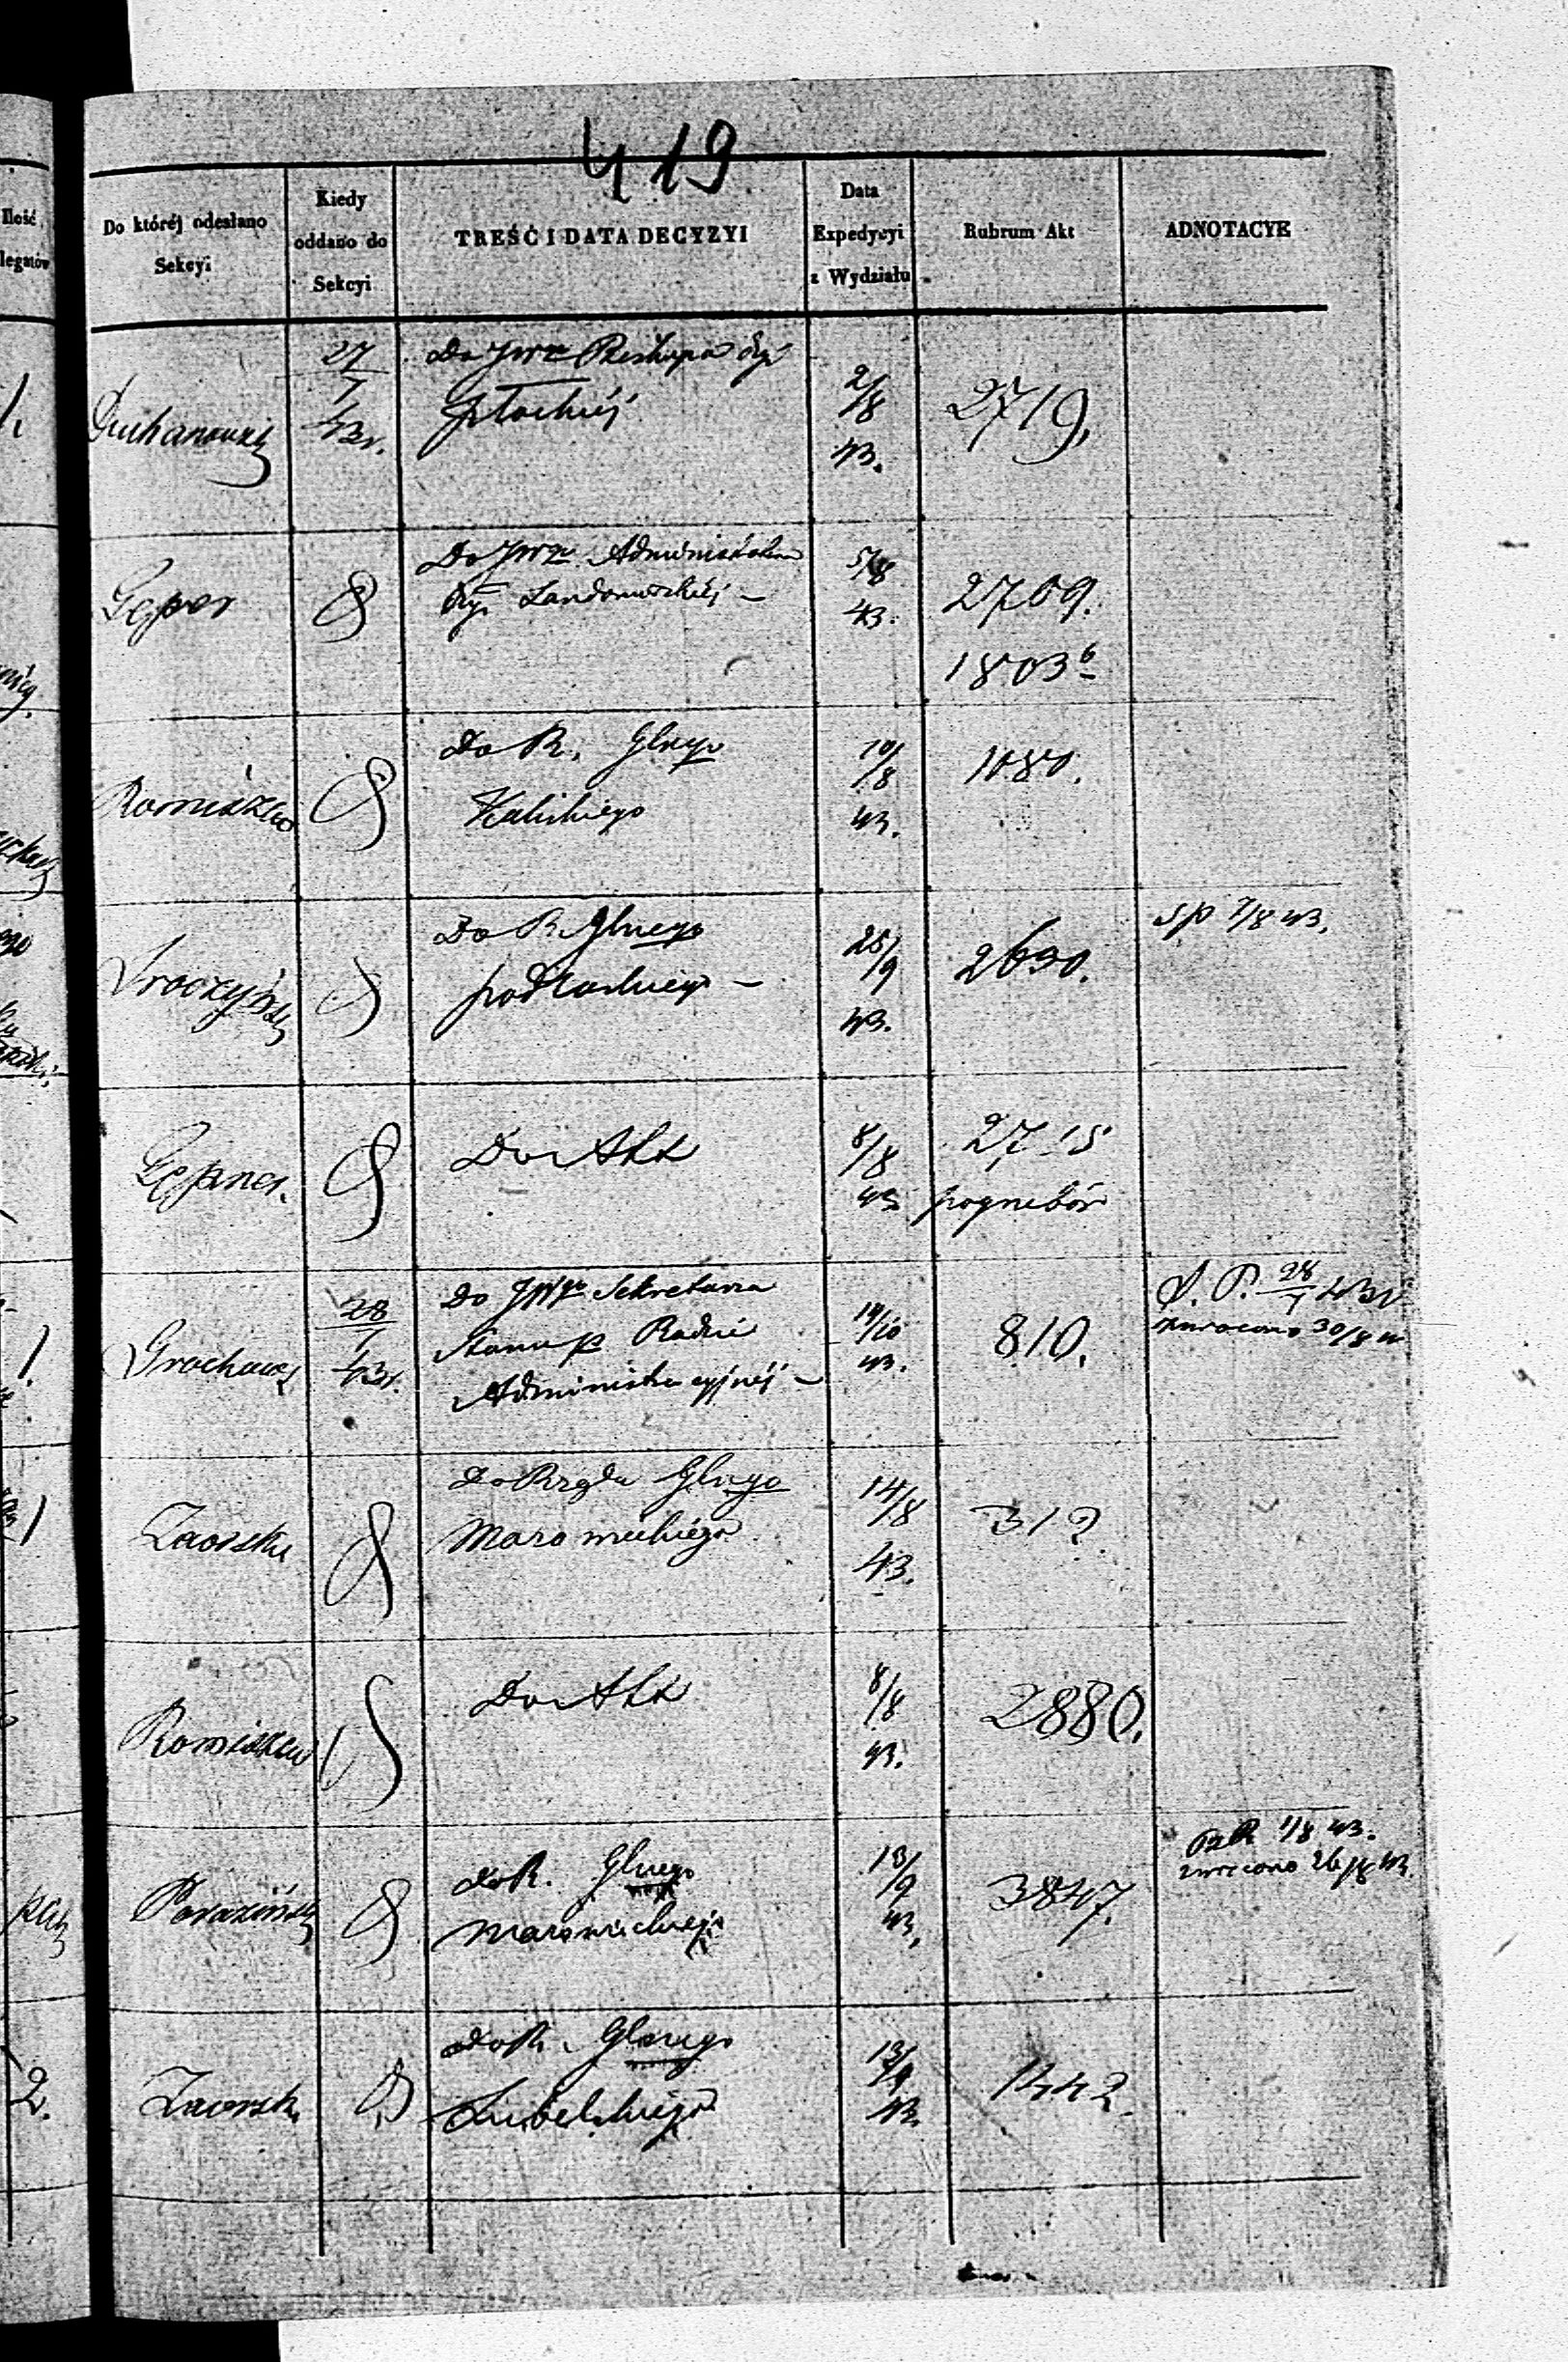 419
Ilość
legatów
Do któréj odesłano
Sekcyi
Kiedy
oddano do
Sekcyi
TREŚĆ I DATA DECYZYI
Data
Expedycyi
z Wydziału
Rubrum Akt
ADNOTACYE
27/7
43r.
Do JWX Biskupa Dyi
Płockiéj
2/8
43.
2719.
Gepner
Do JWX Administratora
Dyi Sandomirskiéj –
5/8
43.
2709.
1803 b
Romiszew
Do R. Glnego
Kaliskiego
10/8
43.
1080.
Do R. Glnego
podlaskiego –
25/9
43.
2690.
SP 7/8 43.
Gepner.
Do Akt
8/8
43
2715
pogrzebów
Grochows
28/7
43r.
Do JW Sekretarza
Stanu p Radzie
Administracyjnéj –
14/10
43.
810.
S. P. 28/7 43r
zwrócono 30/8
Zaorski
Do Rządu Glnego
Mazowieckiego
14/8
43.
312
Romiszew
Do Akt
8/8
43.
2880.
Paraziński
Do R. Glnego
Mazowieckiego
13/9
43.
3847.
1/8 43.
zwrócono 26/8 43.
2.
Zaorski
Do R. Glnego
Lubelskiego
13/9
43.
1442